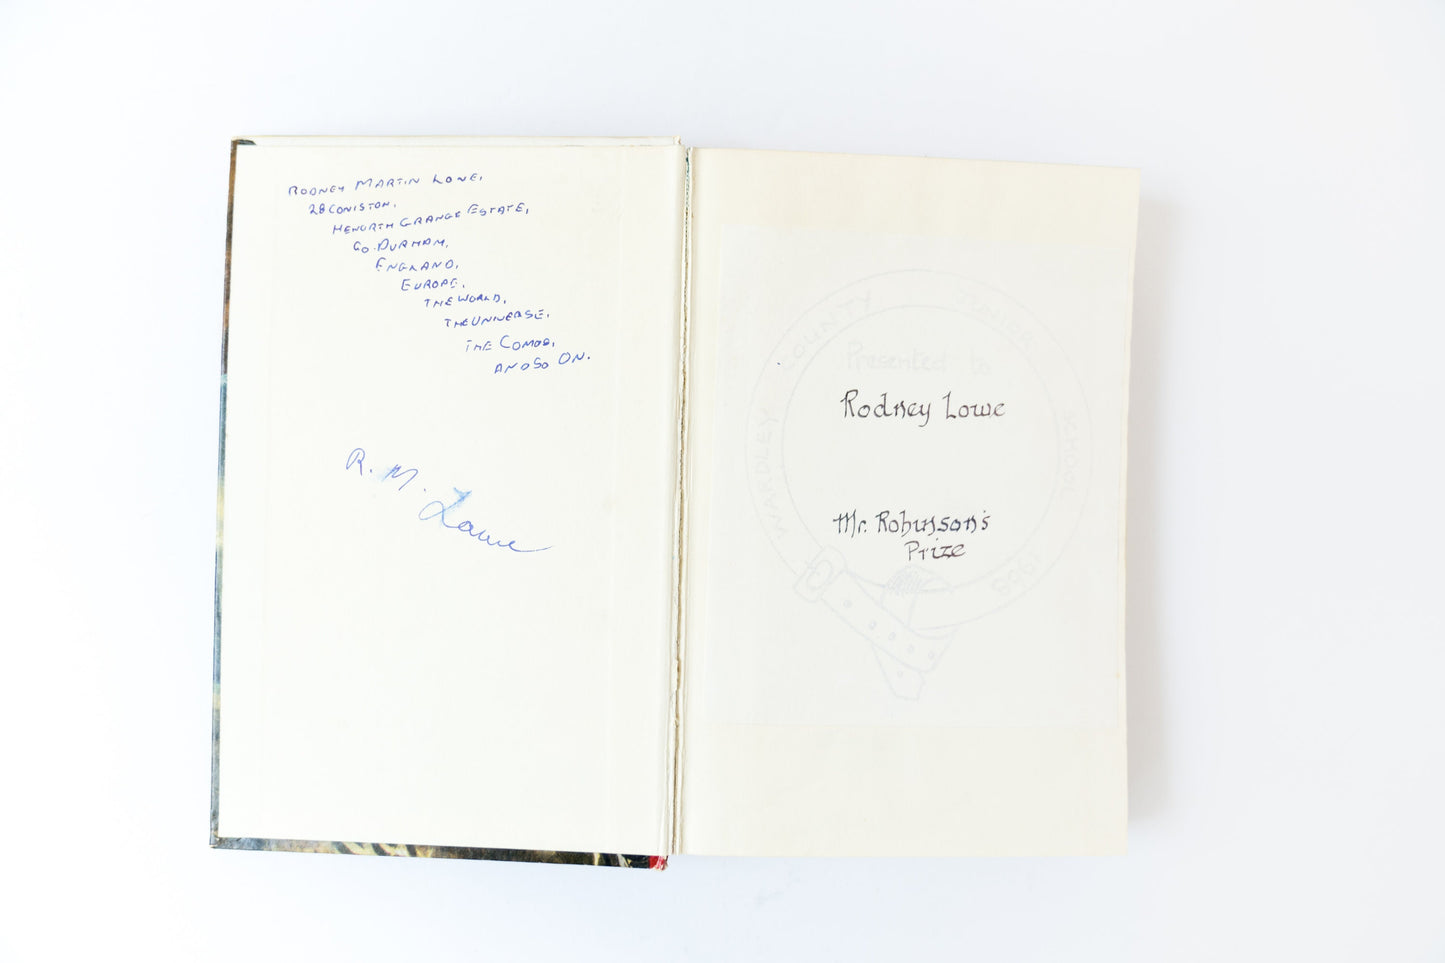 RODNEY MARTIN LOWE,
28 CONISTON,
HEWORTH GRANGE ESTATE,
CO. DURHAM,
ENGLAND,
EUROPE,
THE WORLD,
THE UNIVERSE,
THE COMOS,
AND SO ON.
R. M. Lowe
WARDLEY COUNTY JUNIOR SCHOOL 1968
Presented to
Rodney Lowe
Mr. Robinson's
Prize